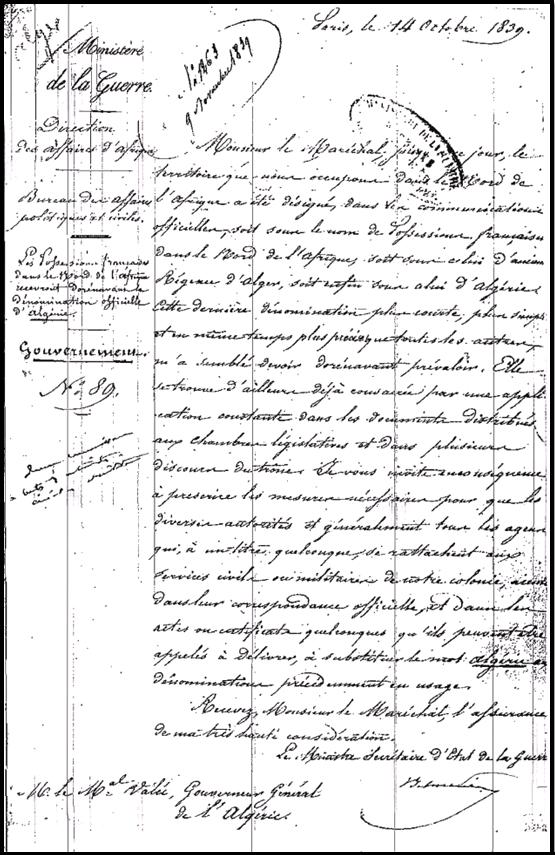 Paris, le 14 Octobre 1839.
N° 1463
9 Novembre 1839
Ministère
de la Guerre.
Direction
des affaires d'Afrique
Bureau des affaires
politiques et civiles.
Les Possessions françaises
dans le Nord de l'Afrique
recevront dorénavant la
dénomination officielle
d'Algérie.
Gouvernement.
N° 89.
Monsieur le Maréchal, jour, le
territoire que nous occupons dans le Nord de
l'Afrique a été désigné, dans les communications
officielles, soit sous le nom de Possessions françaises
dans le Nord de l'Afrique, soit sous celui d'ancienne
Régence d'Alger, soit enfin sous celui d'Algérie.
Cette dernière dénomination plus courte, plus simple
et en même temps plus précise que toutes les autres,
m'a semblé devoir dorénavant prévaloir. Elle
se trouve d'ailleurs déjà consacrée par une appli-
cation constante dans les documents distribués
aux chambres législatives et dans plusieurs
discours du trône. Je vous invite en conséquence
à prescrire les mesures nécessaires pour que les
diverses autorités et généralement tous les agens
qui, à un titre quelconque, se rattachent aux
services civils ou militaires de notre colonie, aient
dans leur correspondance officielle, et dans les
actes ou certificats quelconques qu'ils peuvent être
appelés à délivrer, à substituer le mot algérie aux
dénominations précédemment en usage.
Recevez, Monsieur le Maréchal, l'assurance
de ma très haute considération.
Le Ministre Secrétaire d'Etat de la Guerre
M. le Mal Valée, Gouverneur Général
de l'Algérie.